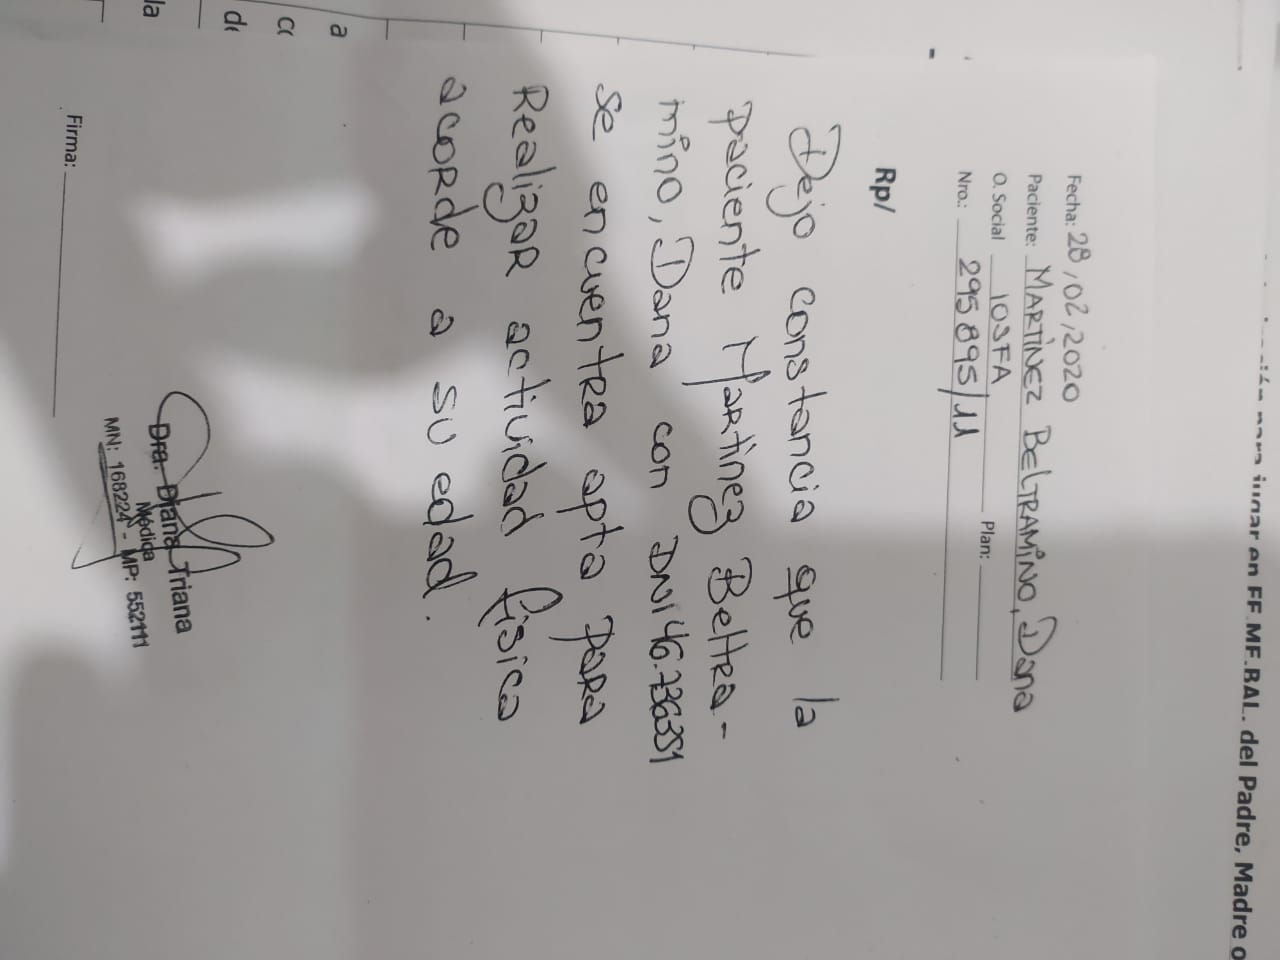 para jugar en FF.MF.BAL. del Padre, Madre o
Fecha: 28/02/2020
Paciente: MARTÍNEZ BELTRAMINO, Dana
O. Social IOSFA Plan:
Nro.: 295895/11
Rp/
Dejo constancia que la
paciente Martínez Beltra-
mino, Dana con DNI 46.736351
se encuentra apta para
Realizar actividad física
acorde a su edad.
Dra. Diana Triana
Médica
MN: 168224 - MP: 552111
Firma: